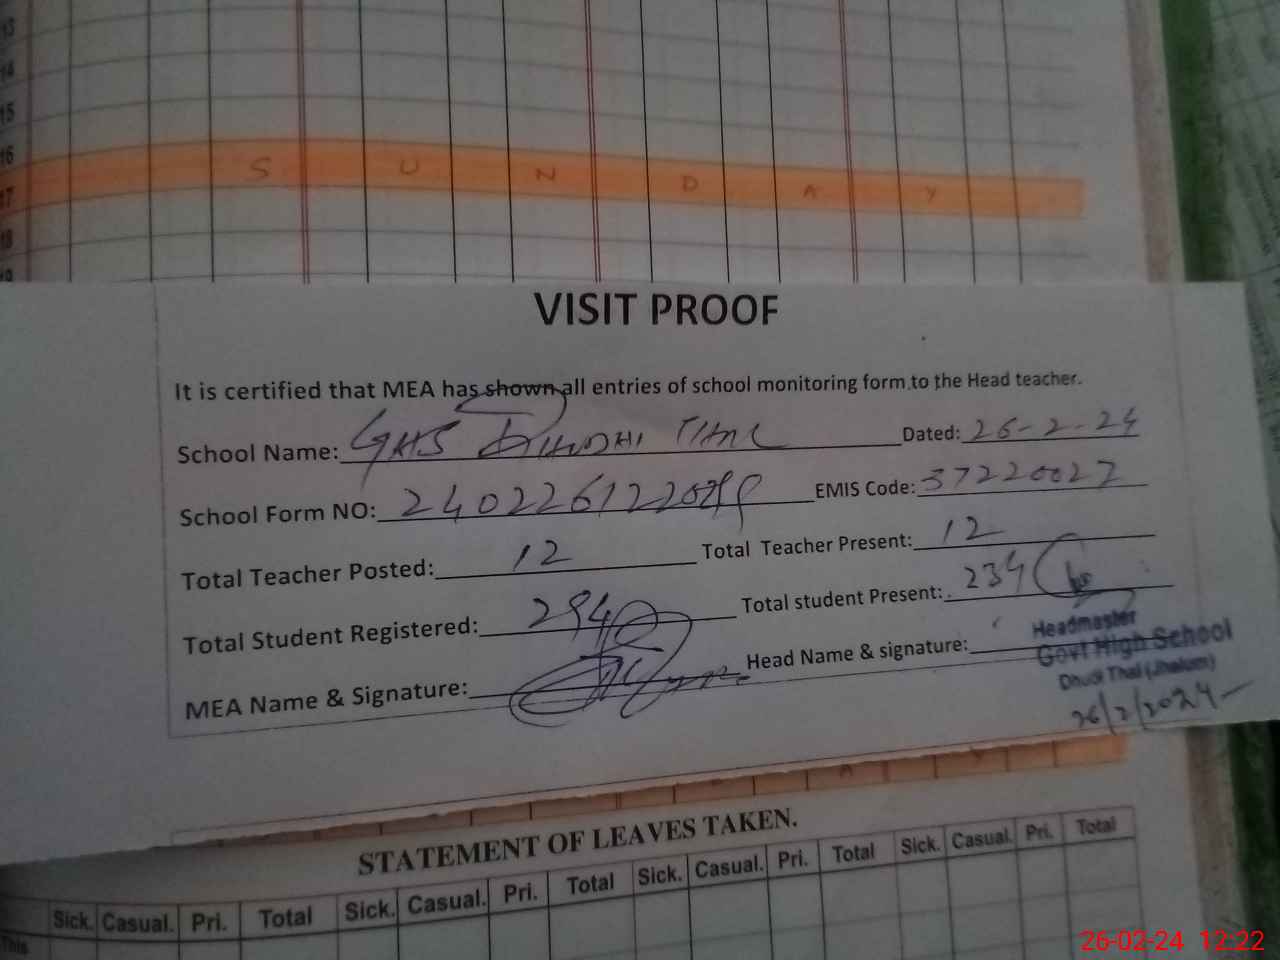 13
14
15
16
17
18
19
S U N D A Y
VISIT PROOF
It is certified that MEA has shown all entries of school monitoring form to the Head teacher.
School Name: GHS DHUDHI THAL Dated: 26-2-24
School Form NO: 2402261220 EMIS Code: 37220027
Total Teacher Posted: 12 Total Teacher Present: 12
Total Student Registered: 294 Total student Present: 234
MEA Name & Signature: Head Name & signature:
Headmaster
Govt High School
Dhudi Thal (Jhelum)
26/2/2024
A Y
STATEMENT OF LEAVES TAKEN.
Sick. Casual. Pri. Total Sick. Casual. Pri. Total Sick. Casual. Pri. Total Sick. Casual. Pri. Total
This
26-02-24 12:22